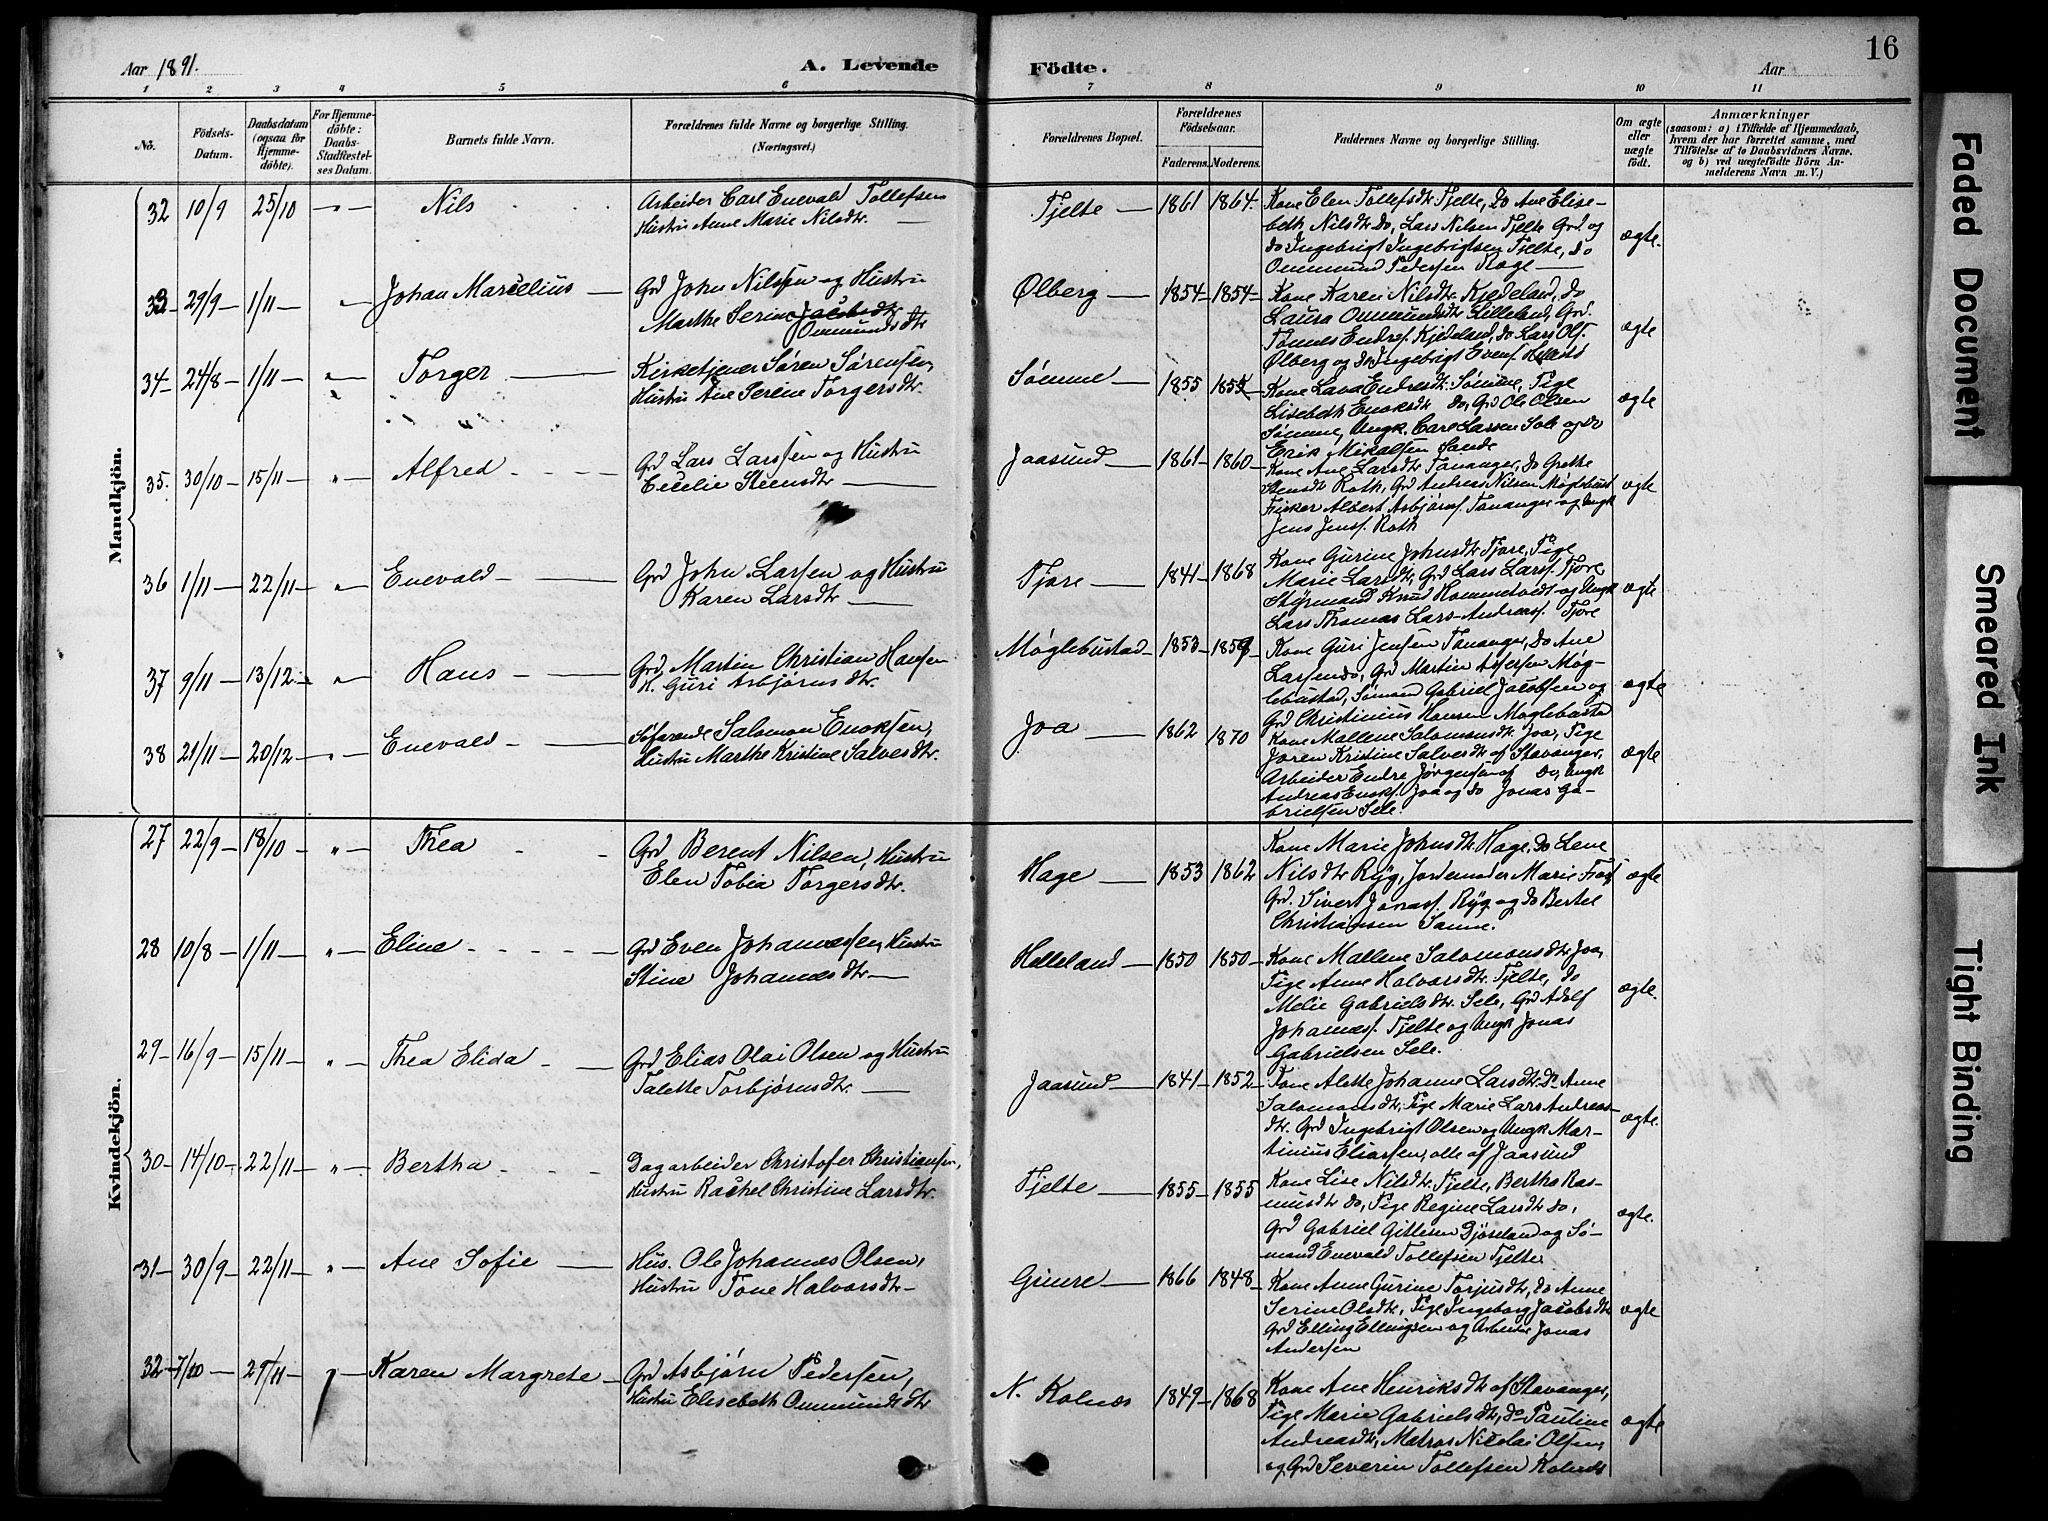 16
Aar 1891.
A. Levende
Födte.
Aar
1 2 3 4 5 6 7 8 9 10 11
No.
Födsels-
Datum.
Daabsdatum
(ogsaa for
Hjemme-
döbte).
For Hjemme-
döbte:
Daabs-
Stadfæstel-
ses Datum.
Barnets fulde Navn.
Forældrenes fulde Navne og borgerlige Stilling.
(Næringsvei.)
Forældrenes Bopæl.
Forældrenes
Födselsaar.
Faderens. Moderens.
Faddernes Navne og borgerlige Stilling.
Om ægte
eller
uægte
födt.
Anmærkninger
(saasom: a) i Tilfælde af Hjemmedaab,
hvem der har forrettet samme, med
Tilföielse af to Daabsvidners Navne.
og b) ved uægtefödte Börn An-
melderens Navn m. V.)
Mandkjön.
32 10/9 25/10 — " — Nils
Arbeider Carl Enevald Tollefsen
Hustru Anne Marie Nilsdtr.
Tjelte — 1861 1864.
Kone Elen Tollefsdtr Tjelte, Do Ane Elise-
beth Nilsdtr Do, Lars Nilsen Tjelte Grd. og
Do Ingebrigt Ingebrigtsen Tjelte, Do
Ommund Pedersen Ræge —
ægte.
33 — 29/9 — 1/11 — " Johan Marselius —
Grd John Nilssen og Hustru
Marthe Serine Jacobsdtr
Ommundsdtr
Ølberg — 1854 — 1854 —
Kone Karen Nilsdtr. Kjedeland, Do
Laura Ommundsdtr Lilleland, Grd.
Tønnes Endres. Kjedeland, Do Lars Ols.
Ølberg og Do Ingebrigt Evens.
ægte
34 — 24/8 — 1/11 — " — Torger —
Kirketjener Søren Sørensen,
Hustru Ane Serine Torgersdtr.
Sømme — 1855
Kone Lava Endresdtr. Sømme, Pige
Lisebeth Enoksdtr Do, Grd Ole Olsen
Sømme, Ungk. Carl Larsen Sole og Do
Erik Mikalsen Sande
ægte
35. 30/10 — 15/11 — " — Alfred —
Grd Lars Larssen og Hustru
Cecilie Steensdtr —
Jaasund — 1861 — 1860 —
Kone Ane Larsdtr Tananger, Do Grethe
Stensdtr Roth, Grd Andreas Nilsen Møglebust
Fisker Albert Asbjørns. Tananger og Ungk
Jens Jenss. Roth
ægte
36 1/11 — 22/11 — " — Enevald —
Grd John Larsen og Hustru
Karen Larsdtr —
Tjore — 1841 — 1868
Kone Gurine Johnsdtr Tjore, Pige
Marie Larsdtr, Grd Lars Larss. Tjore
Styrmand Knud Hommelvedt og Ungk
Lars Thomas Lars-Andreass. Tjore
ægte
37 9/11 — 13/12 — " — Hans —
Grd Martin Christian Hansen
H. Guri Asbjørnsdtr.
Møglebustad — 1853 — 1859 —
Kone Guri Jensen Tananger, Do Ane
Larsen Do, Grd Martin Assersen Møg-
lebustad, Sømand Gabriel Jacobsen og
Grd Christinius Hansen Møglebustad
ægte
38 21/11 — 20/12 — " — Enevald —
Søfarende Salomon Enoksen,
Hustru Marthe Kristine Salvesdtr.
Joa — 1862 1870
Kone Mallene Salomonsdtr Joa, Pige
Joren Kristine Salvesdtr af Stavanger,
Arbeider Endre Jørgensen af Do, Ungk
Andreas Enoks. Joa og Do Jonas Ga-
brielsen Sele.
ægte
Kvindekjön.
27 22/9 — 18/10 " — Thea
Grd Berent Nilsen, Hustru
Elen Tobia Torgersdtr.
Hage — 1853 1862
Kone Marie Johnsdtr. Hage, Do Lene
Nilsdtr Ryg, Jordemoder Marie
Grd. Sivert Jonass. Ryg og Do Bertel
Christiansen Sømme.
ægte
28 10/8 — 1/11 " — Eline
Grd Even Johannessen, Hustru
Stine Johannesdtr —
Helleland — 1850 1850 —
Kone Mallene Salomonsdtr Joa,
Pige Anne Halvorsdtr. Tjelte, Do
Melie Gabrielsdtr. Sele, Grd Adolf
Johanness. Tjelte og Ungk Jonas
Gabrielsen Sele.
ægte.
29 — 16/9 — 15/11 — " — Thea Elida —
Grd Elias Olai Olsen og Hustru
Talette Torbjørnsdtr. —
Jaasund — 1841 — 1852 —
Kone Alette Johanne Larsdtr. Do Anne
Salomonsdtr. Pige Marie Lars Andreas-
dtr. Grd Ingebrigt Olsen og Ungk Mar-
tinius Eliassen, alle af Jaasund
ægte.
30 — 14/10 — 22/11 — " — Bertha
Dagarbeider Christofer Christiansen,
Hustru Rachel Christine Larsdtr.
Tjelte — 1855 — 1855
Kone Lise Nilsdtr. Tjelte, Bertha Ras-
musdtr Do, Pige Regine Larsdtr Do,
Grd Gabriel Gitlesen Djøseland og Sø-
mand Enevald Tollefsen Tjelte
ægte.
31 — 30/9 — 22/11 — " — Ane Sofie —
Hus. Ole Johannes Olsen,
Hustru Tone Halvorsdtr —
Gimre — 1866 1848 —
Kone Anne Gurine Torjusdtr, Do Anne
Serine Olsdtr, Pige Ingeborg Jacobsdtr
Grd Elling Ellingsen og Arbeider Jonas
Andersen
ægte
32 — 7/10 — 29/11 Karen Margrete —
Grd Asbjørn Pedersen,
Hustru Elisebeth Ommundsdtr
N. Kolnæs 1849 — 1868
Kone Ane Henriksdtr af Stavanger,
Pige Marie Gabrielsdtr, Do Pautine
Andreasdtr, Matros Nicolai Olsen,
og Grd Severin Tollefsen Kolnæs
ægte
Faded Document
Smeared Ink
Tight Binding